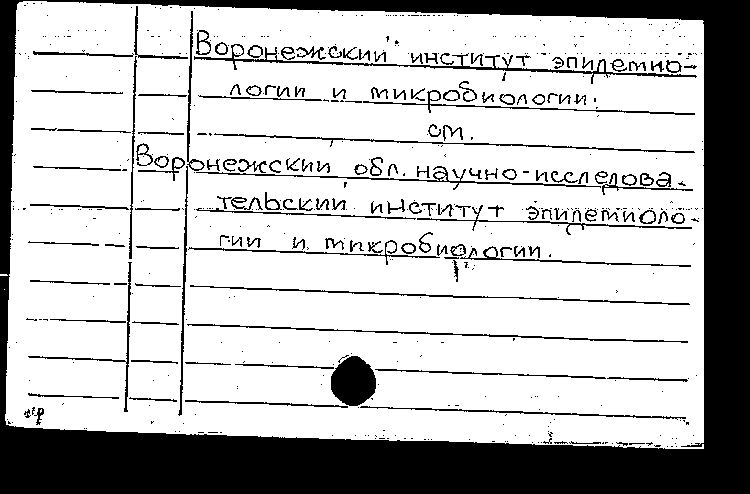 Воронежский институт эпидемио-
логии и микробиологии.
см.
Воронежский обл. научно-исследова-
тельский институт эпидемиоло-
гии и микробиологии.